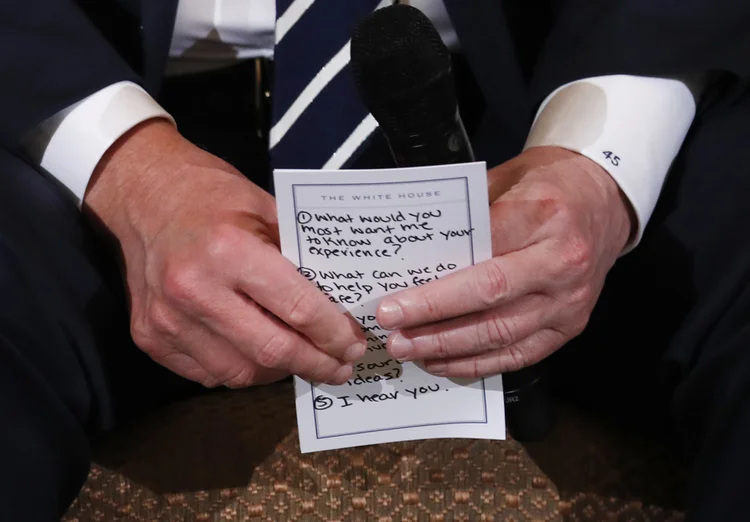 THE WHITE HOUSE
① What would you
most want me
to know about your
experience?
② What can we do
to help you feel
safe?
ideas?
⑤ I hear you.
45